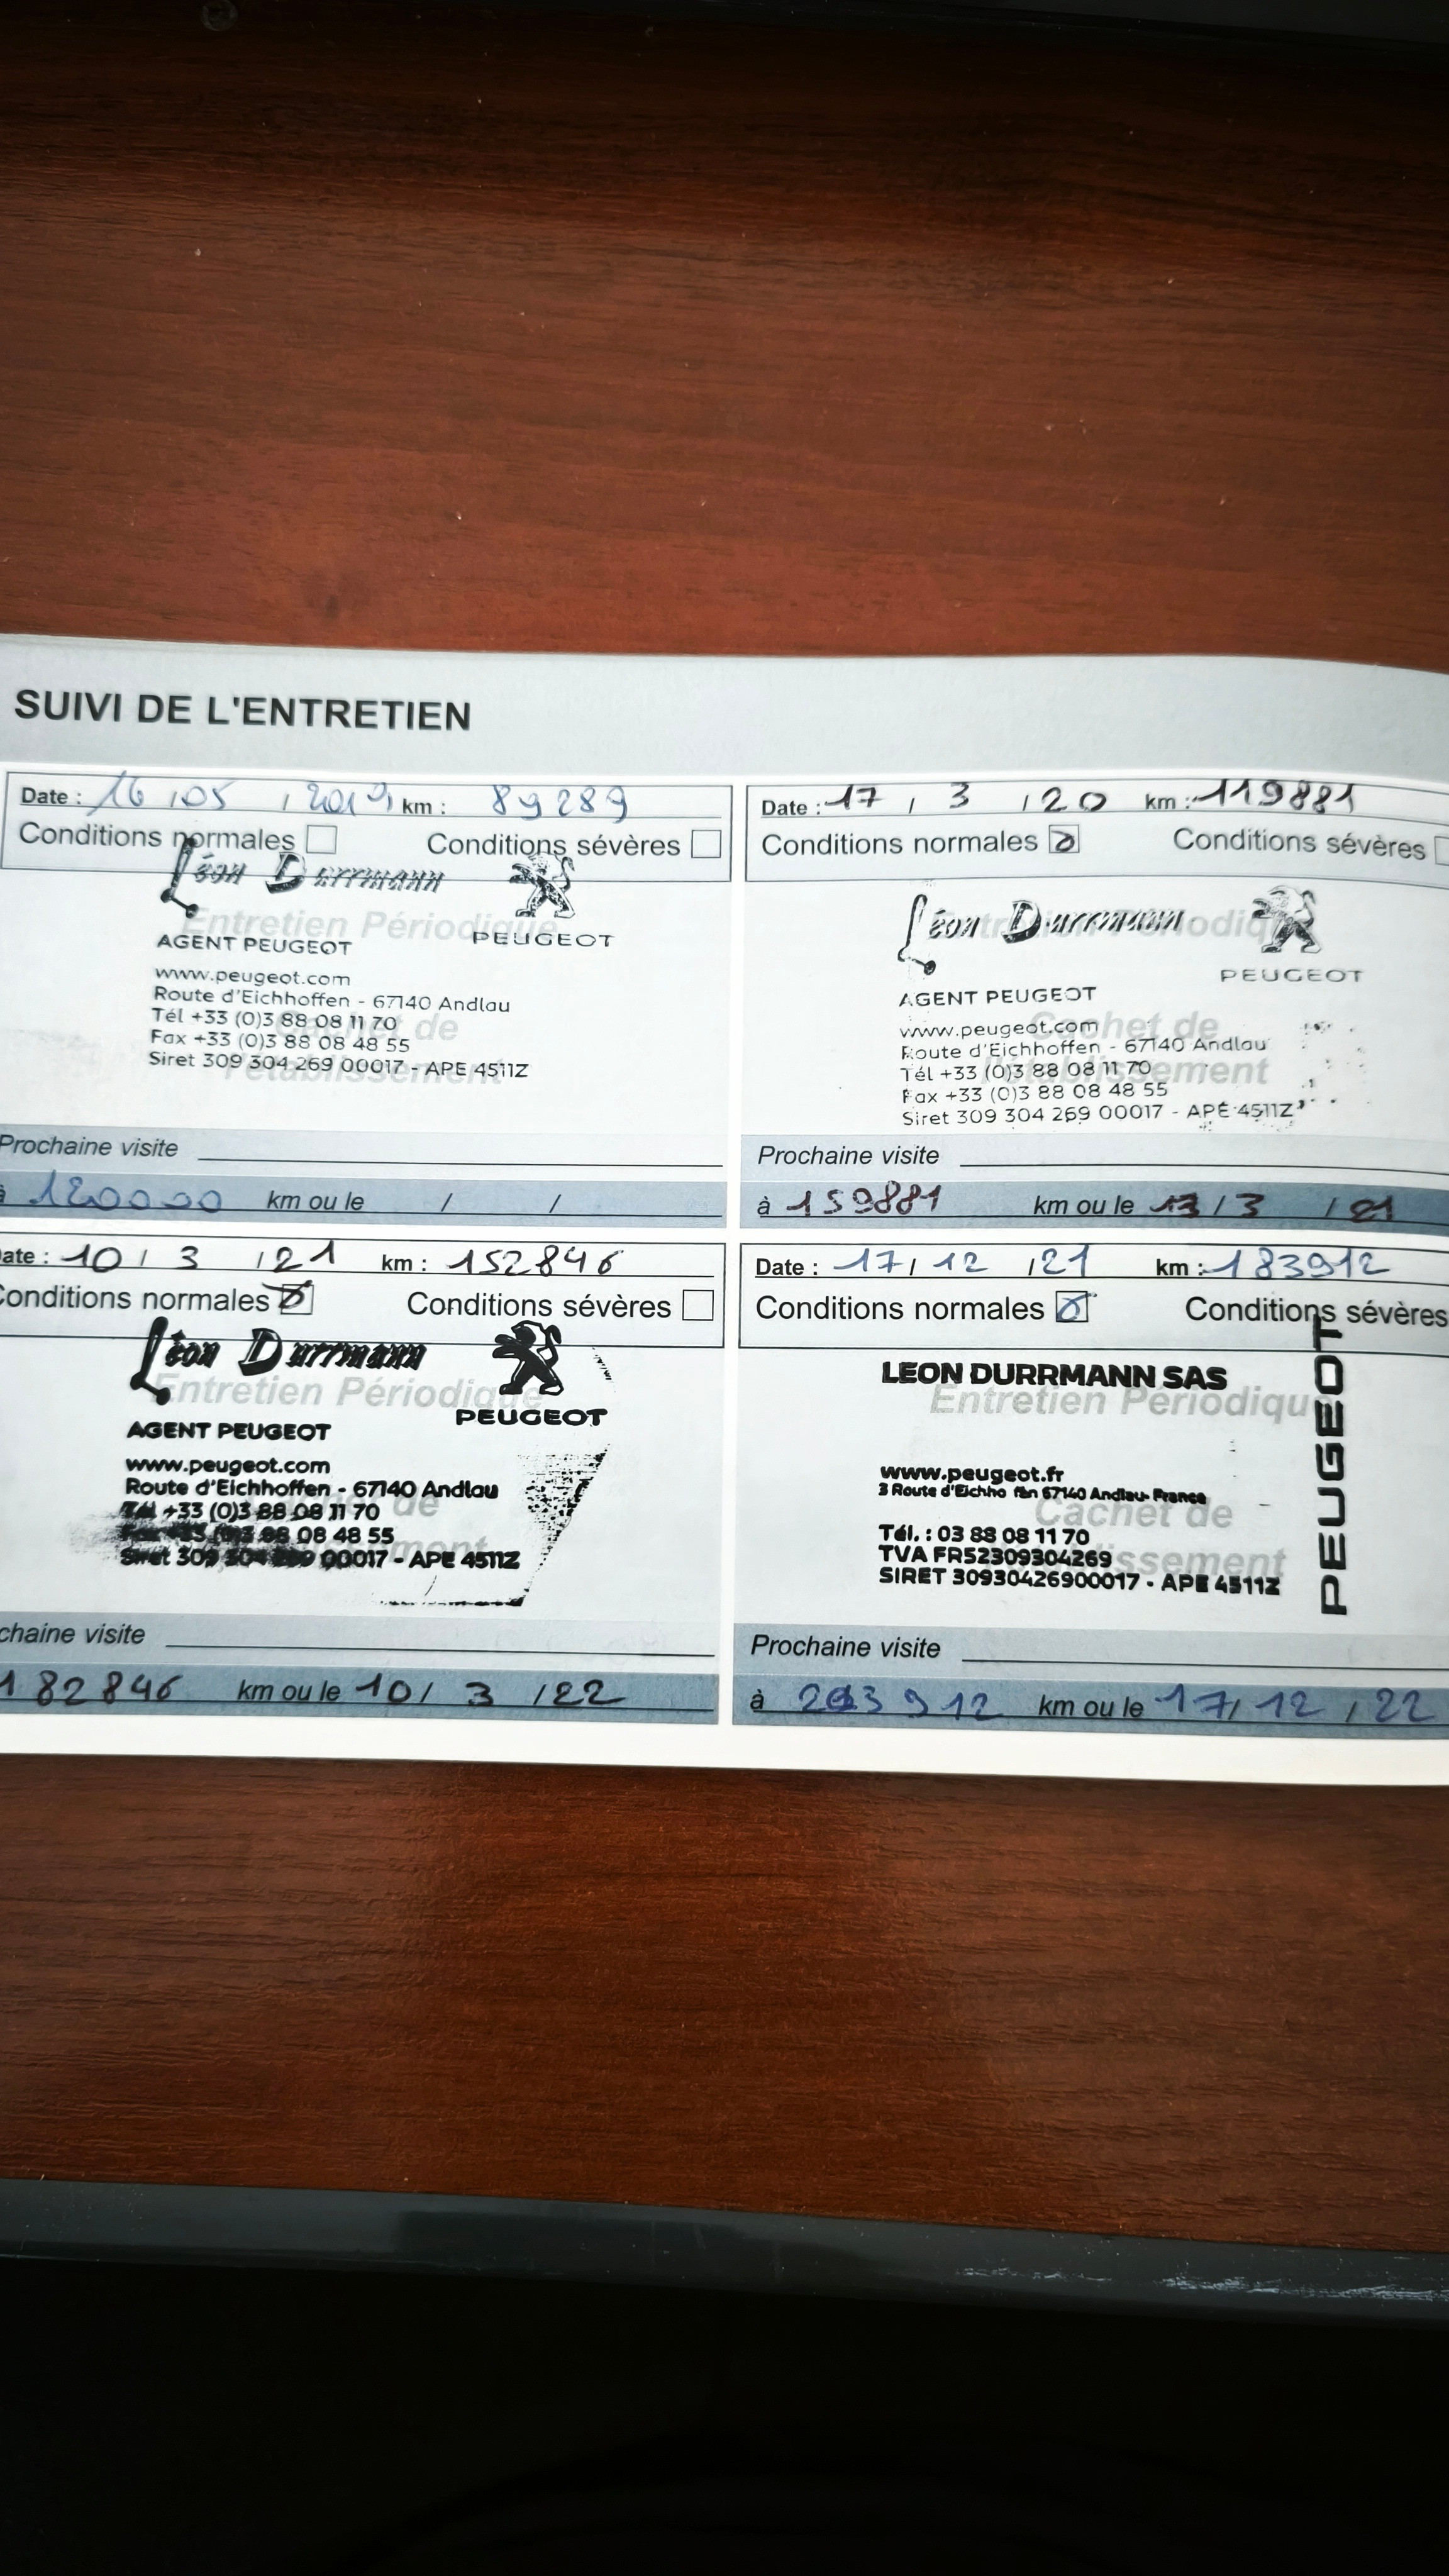 SUIVI DE L'ENTRETIEN
Date : 16 / 05 / 2019 km : 89289
Conditions normales Conditions sévères
Léon Durrmann
Entretien Périodique
AGENT PEUGEOT PEUGEOT
www.peugeot.com
Route d'Eichhoffen - 67140 Andlau
Tél +33 (0)3 88 08 11 70
Cachet de
Fax +33 (0)3 88 08 48 55
Siret 309 304 269 00017 - APE 4511Z
l'établissement
Prochaine visite
à 120000 km ou le / /
Date : 17 / 3 / 20 km : 119881
Conditions normales Conditions sévères
Léon Durrmann
Entretien Périodiq
PEUGEOT
AGENT PEUGEOT
www.peugeot.com
Cachet de
Route d'Eichhoffen - 67140 Andlau
Tél +33 (0)3 88 08 11 70
l'établissement
Fax +33 (0)3 88 08 48 55
Siret 309 304 269 00017 - APE 4511Z
Prochaine visite
à 159881 km ou le / 3 / 21
ate : 10 / 3 / 21 km : 152846
Conditions normales Conditions sévères
Léon Durrmann
Entretien Périodique
PEUGEOT
AGENT PEUGEOT
www.peugeot.com
Route d'Eichhoffen - 67140 Andlau
Tél +33 (0)3 88 08 11 70
de
Fax +33 (0)3 88 08 48 55
Siret 309 304 269 00017 - APE 4511Z
chaine visite
182846 km ou le 10 / 3 / 22
Date : 17 / 12 / 21 km : 183912
Conditions normales Conditions sévères
LEON DURRMANN SAS
Entretien Périodiqu
PEUGEOT
www.peugeot.fr
3 Route d'Eichho fen 67140 Andlau- France
Cachet de
Tél. : 03 88 08 11 70
TVA FR52309304269
ssement
SIRET 30930426900017 - APE 4511Z
Prochaine visite
à km ou le 17 / 12 / 22